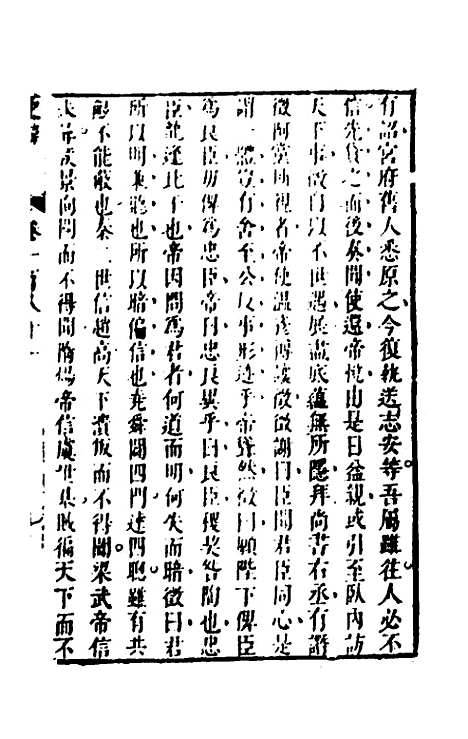 有詔宮府舊人悉原之今復執送志安等吾屬雖往人必不
信先貸之而後奏聞使還帝悅由是日益親或引至臥內訪
天下事徵自以不世遇展盡底蘊無所隱拜尚書右丞有譖
徵阿黨親者帝使溫彥博徵徵謝曰臣聞君臣同心是
謂一體豈有舍至公反事形迹乎帝矍然徵曰願陛下俾臣
為良臣毋俾為忠臣帝曰忠良異乎曰良臣稷契咎陶也忠
臣龍逄比干也帝因問為君者何道而明何失而暗徵曰君
所以明兼聽也所以暗偏信也堯舜闢四門達四聰雖有共
鯀不能蔽也秦二世信趙高天下潰叛而不得聞梁武帝信
朱异侯景向闕而不得聞隋煬帝信虞世基賊徧天下而不
卷一百八十一